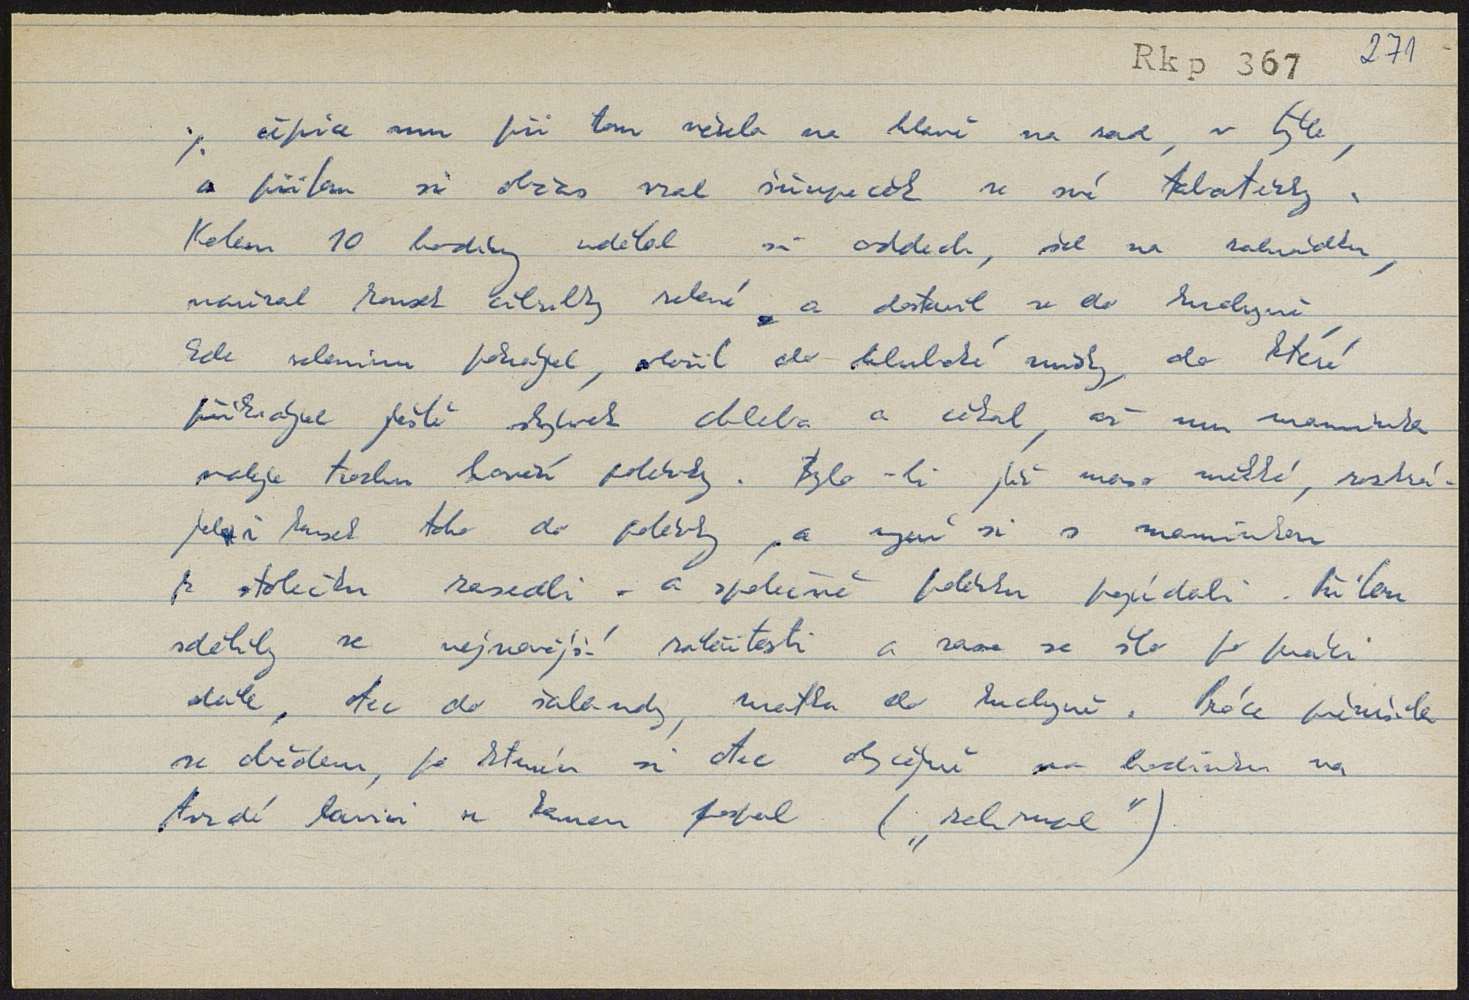 Rkp 367 271
, čepice mu při tom visela na hlavě na zad, v týle,
a přitom si občas vzal šňupeček ze své tabatěrky.
Kolem 10 hodiny udělal si oddech, šel na zahrádku,
nařezal kousek cibulky zelené, a dostavil se do kuchyně,
kde zeleninu pokrájel, vložil do hluboké misky, do které
přikrájel ještě skývek chleba a čekal, až mu maminka
naleje trochu hovězí polévky. Bylo-li již maso měkké, rozkrá-
jel i kousek toho do polévky, a nyní si s maminkou
k stolečku zasedli - a společně polévku pojídali. Přitom
sdělily se nejnovější záležitosti a zase se šlo po práci
dále, otec do šalandy, matka do kuchyně. Práce přerušila
se obědem, po kterém si otec obyčejně na hodinku na
tvrdé lavici u kamen pospal („zchrupl")